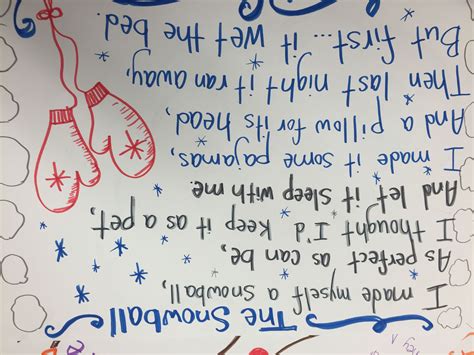 The Snowball
I made myself a Snowball,
As perfect as can be,
I thought I'd keep it as a pet,
And let it sleep with me.
I made it some pajamas,
And a pillow for its head,
Then last night it ran away,
But first... it wet the bed.